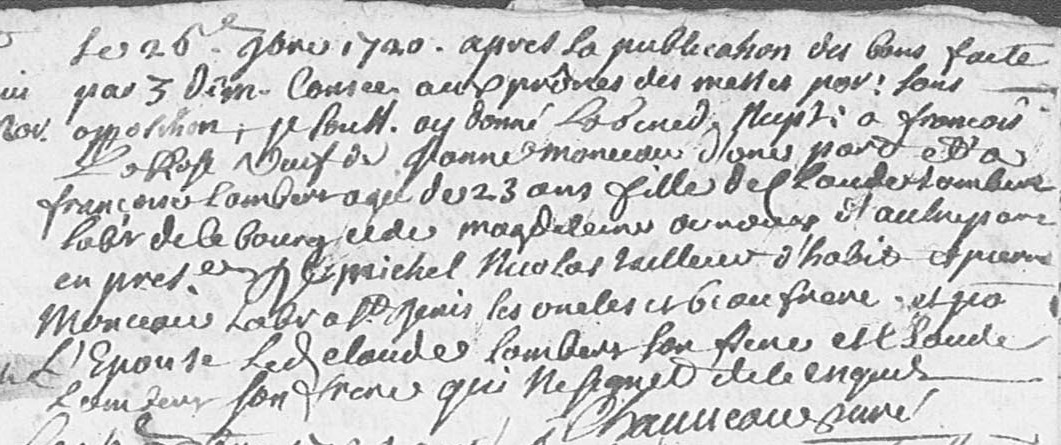 Le 26e. 9bre 1720. apres la publication des bans faite
par 3 dim. consec. aux prônes des messes par. sans
opposition, je souss. ay donné la bened. nupt. a françois
veuf de Janne Monceau d'une part et a
françoise Lambert agee de 23 ans fille de Claude Lambert
labr de ce bourg et de Magdeleine d'autre part
en pres.ce de michel Nicolas tailleur d'habit et pierre
Monceau labr a St Denis les oncles et beau frere. et po
L'Epouse led claude Lambert son pere et Claude
Lambert son frere qui ne signet de ce enquis
curé